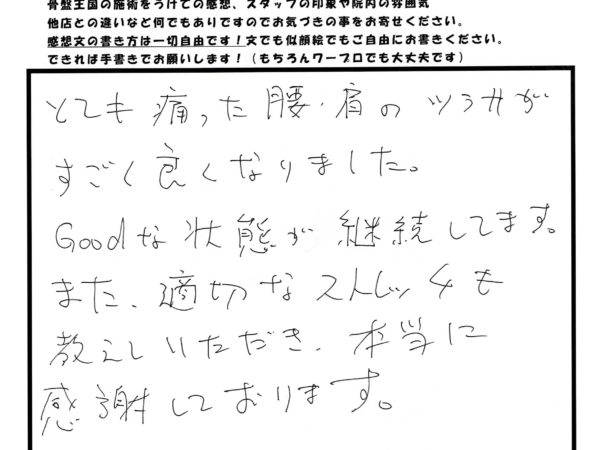 骨盤王国の施術をうけての感想、スタッフの印象や院内の雰囲気
他店との違いなど何でもありですのでお気づきの事をお寄せください。
感想文の書き方は一切自由です！文でも似顔絵でもご自由にお書きください。
できれば手書きでお願いします！（もちろんワープロでも大丈夫です）
とても痛った腰・肩のツラサが
すごく良くなりました。
Goodな状態が継続してます。
また、適切なストレッチも
教えしいただき、本当に
感謝しております。